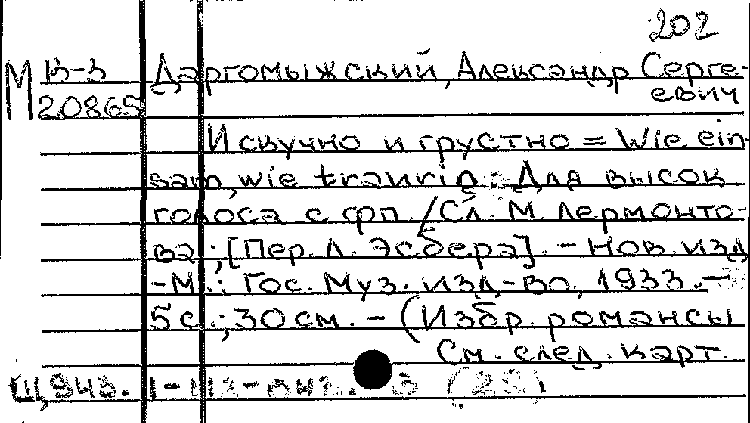 202
М В-3 Даргомыжский, Александр Серге-
20865 евич
И скучно и грустно = Wie ein
sam, wie traurig: Для высок
голоса с фп. / Сл. М Лермонто-
ва ; [Пер. Л. Эсбера]. - Нов. изд
-М.: Гос. Муз. изд-во, 1933. -
5 с.; 30 см. - (Избр. романсы
См. след. карт.
Щ943.